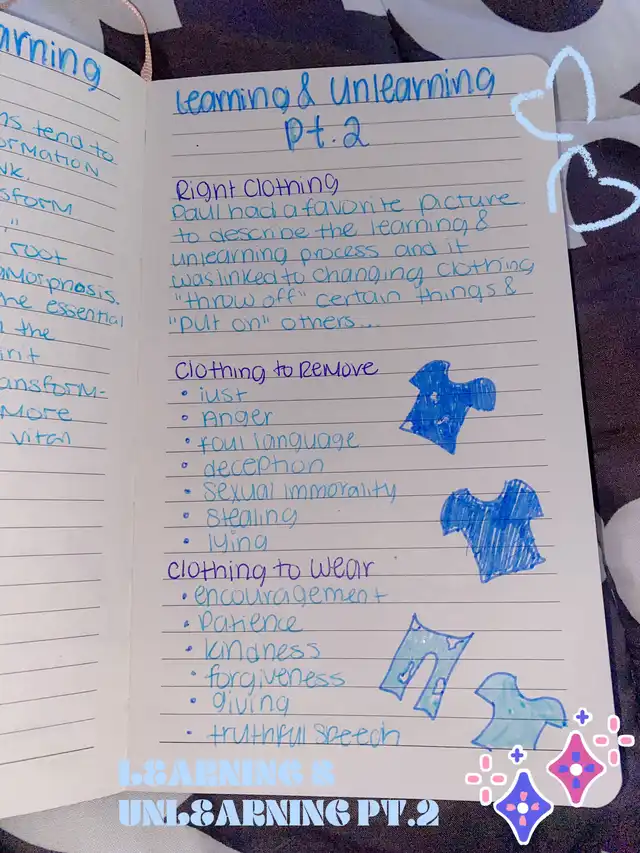 arning
ns tend to
ormation
nk.
sform
"
root
amorphosis.
he essential
n the
irit
ansform-
more
vital
Learning & Unlearning
Pt. 2
Right Clothing
Paul had a favorite picture
to describe the learning &
unlearning process and it
was linked to changing clothing
"throw off" certain things &
"put on" others...
Clothing to Remove
• lust
• Anger
• foul language
• deception
• sexual immorality
• stealing
• lying
Clothing to Wear
• encouragement
• Patience
• kindness
• forgiveness
• giving
• truthful speech
LEARNING &
UNLEARNING PT.2